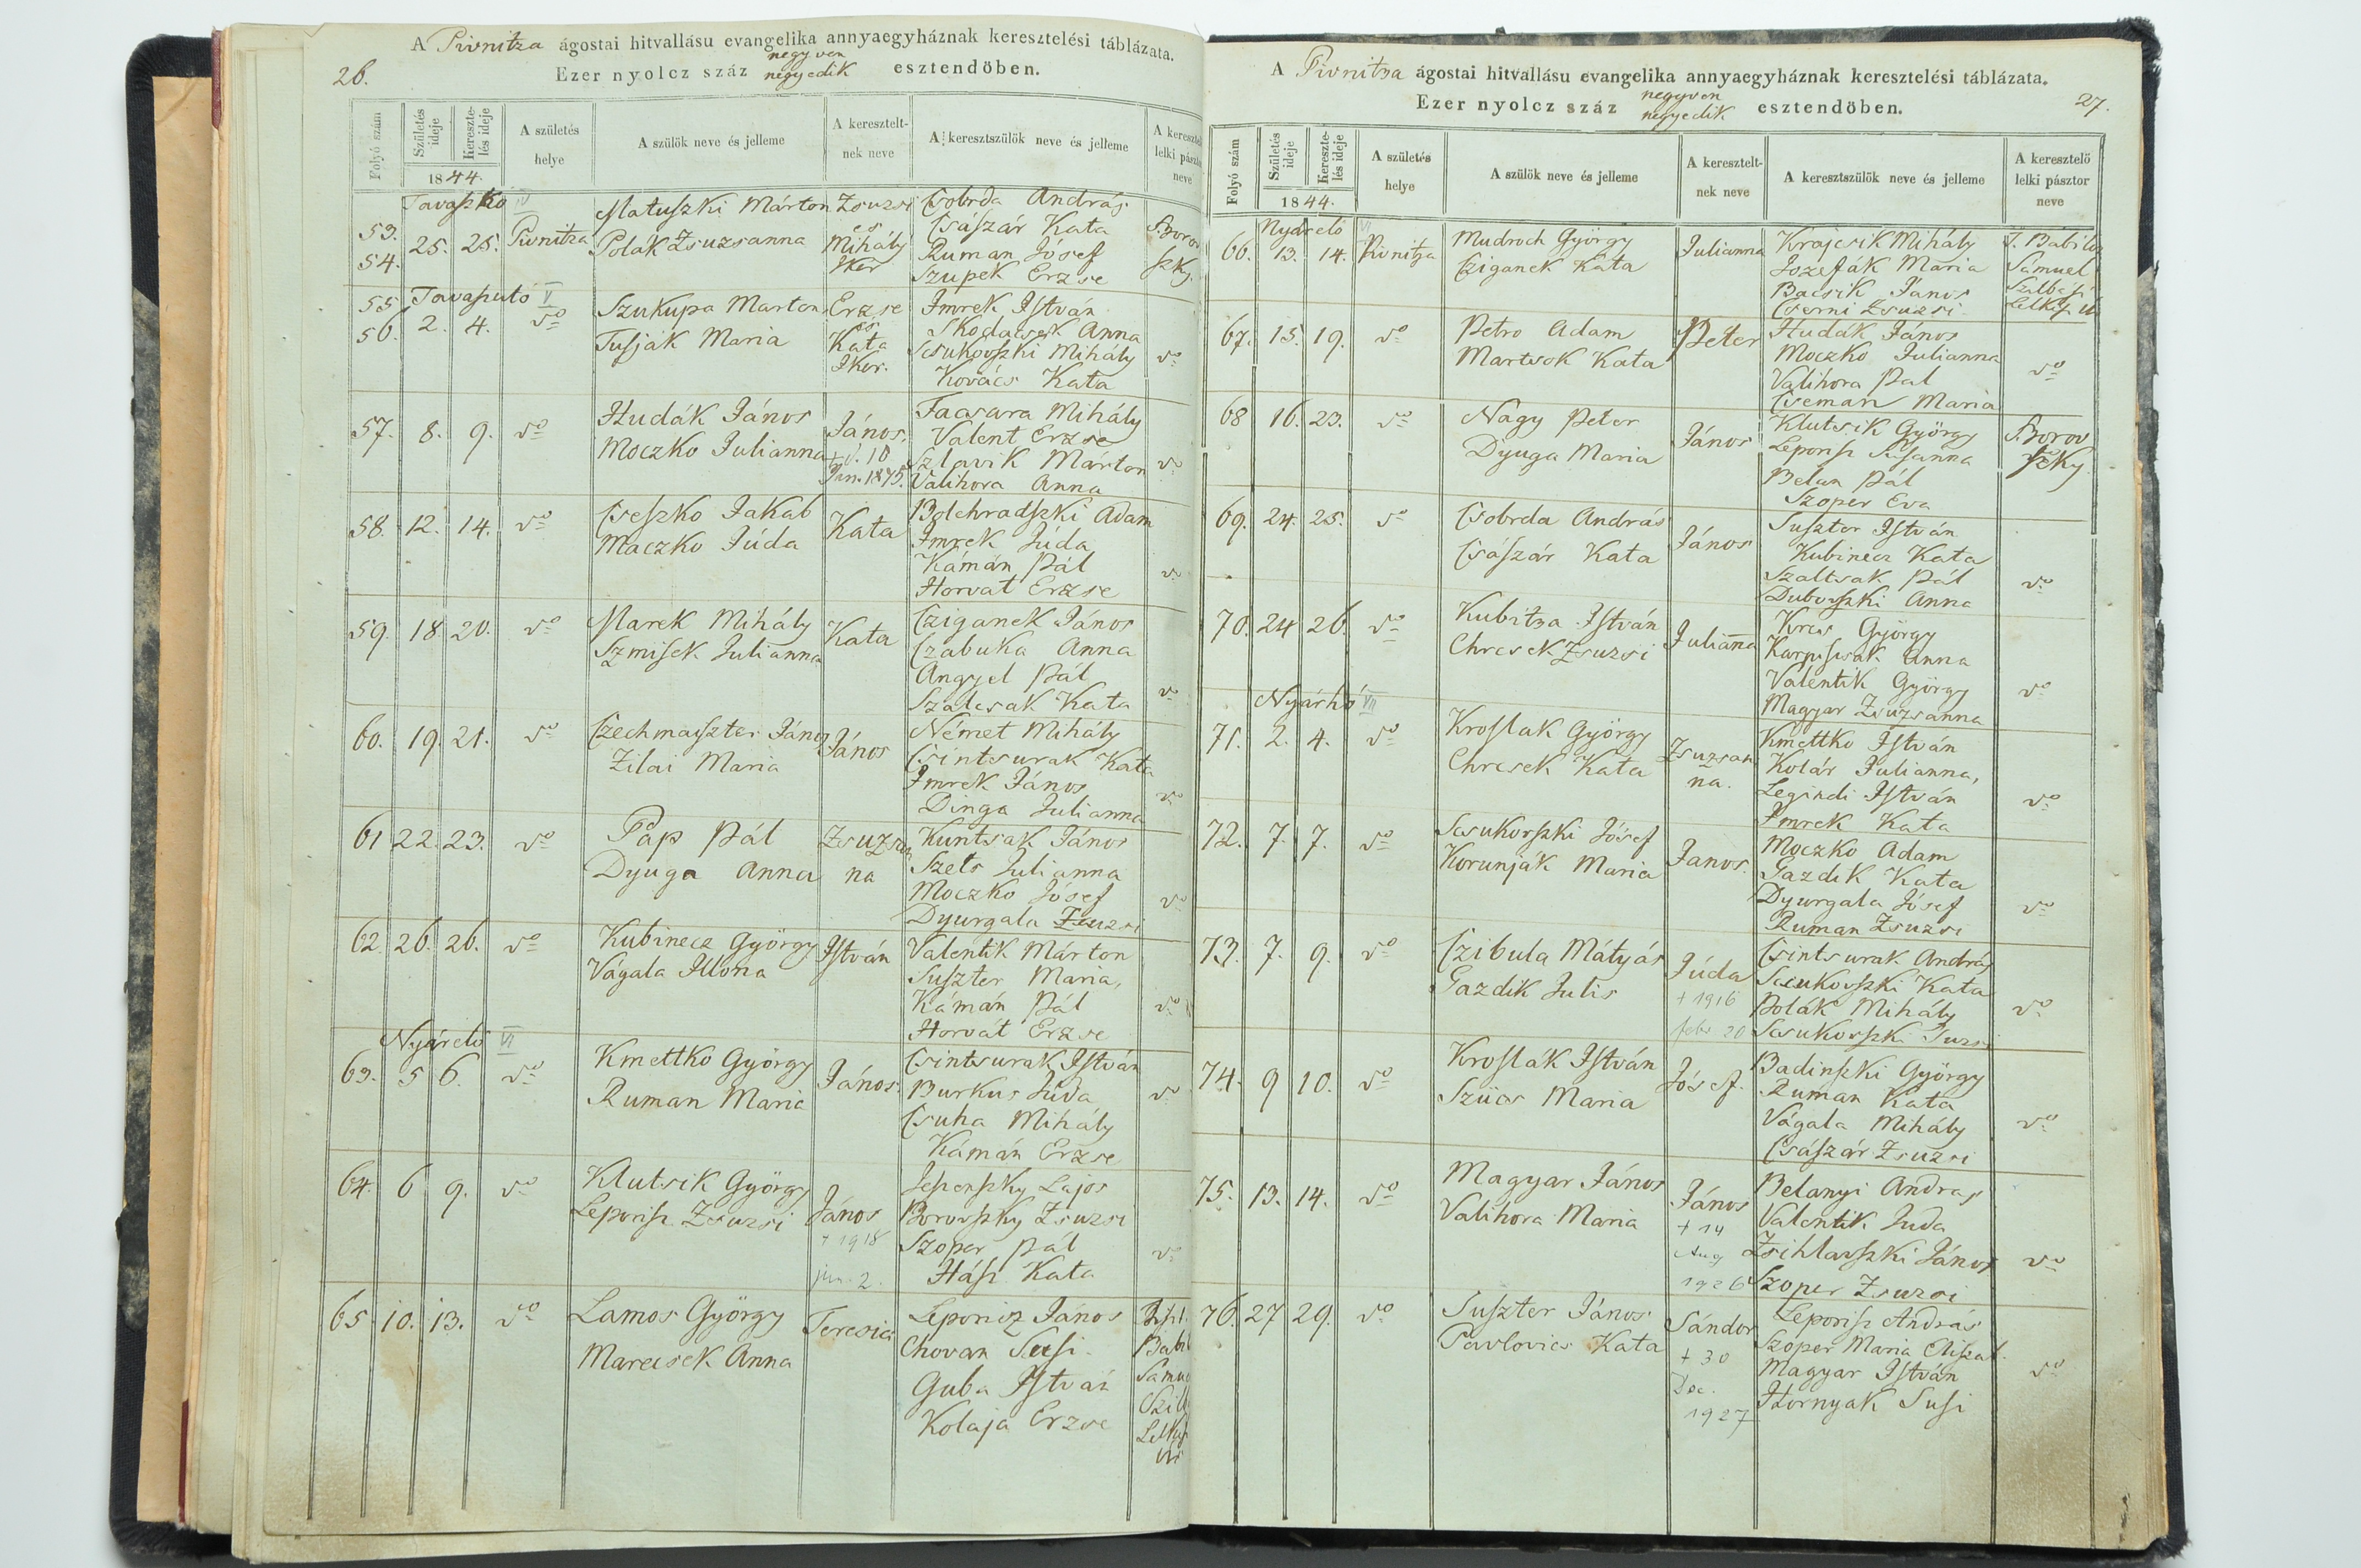 26.
A Pivnitza ágostai hitvallásu evangelika annyaegyháznak keresztelési táblázata.
Ezer nyolcz száz negyven negyedik esztendöben.
Folyó szám
Születés ideje
Keresztelés ideje
1844.
A születés helye
A szülök neve és jelleme
A kereszteltnek neve
A keresztszülök neve és jelleme
A keresztelő lelki pásztor neve
Tavaszkó IV
53. 54. 25. 25. Pivnitza
Matuszki Márton
Polák Zsuzsanna
Zsuzsi
és
Mihály
Iker
Csobrda András
Császár Kata
Ruman Jósef
Szupek Erzse
Tavaszutó V
55 56. 2. 4. do
Szukupa Marton
Tusják Maria
Erzse
és
Kata
Iker.
Imrek István
Skodacsek Anna
Scsukovszki Mihály
Kovács Kata
do
57. 8. 9. do
Hudák János
Moczko Julianna
János.
+ d. 10
Jan. 1875.
Facsara Mihály
Valent Erzse
Szlavik Márton
Valihora Anna
do
58. 12. 14. do
Cseszko Jakab
Maczko Júda
Kata
Bolehradszki Adam
Imrek Juda
Kámán Pál
Horvat Erzse
do
59. 18 20. do
Marek Mihály
Szmisek Julianna
Kata
Cziganek János
Czabuka Anna
Angyel Pál
Szalcsák Kata
do
60. 19. 21. do
Czechmaiszter János
Zilai Maria
János
Német Mihály
Csintsurak Kata
Imrek János
Dinga Julianna
do
61 22. 23. do
Páp Pál
Dyuga Anna
Zsuzsan
na
Kuntsak János
Szets Julianna
Moczko Jósef
Dyurgala Zsuzsi
do
62. 26. 26. do
Kubinecz György
Vágala Illona
István
Valentik Márton
Suszter Maria,
Kámán Pál
Horvát Erzse
do
Nyárelő VI
63. 5 6. do
Kmettko György
Ruman Maria
János.
Csintsurak István
Burkus Júda
Csuha Mihály
Kámán Erzse
do
64. 6 9. do
Klutsik György
Leporisz Zsuzsi
János
+ 1918
jun. 2.
Jeszenszky Lajos
Borovszky Zsuzsi
Szoper Pál
Hász Kata
do
65. 10. 13. do
Lamos György
Marecsek Anna
Teresia
Leporisz János
Chovan Susi.
Guba István
Kolaja Erzse
27.
A Pivnitza ágostai hitvallásu evangelika annyaegyháznak keresztelési táblázata.
Ezer nyolcz száz negyven negyedik esztendöben.
Folyó szám
Születés ideje
Keresztelés ideje
1844.
A születés helye
A szülök neve és jelleme
A kereszteltnek neve
A keresztszülök neve és jelleme
A keresztelő lelki pásztor neve
Nyárelő VI
66. 13. 14. Pivnitza
Mudroch György
Cziganek Kata
Julianna
Krajcsik Mihály
Jozefák Maria
Bacsik János
Cserni Zsuzsi
Samuel
67. 15. 19. do
Petro Adam
Martsok Kata
Peter
Hudák János
Moczko Julianna
Valihora Pal
Cseman Maria
do
68 16. 23. do
Nagy Peter
Dyuga Maria
János
Klutsik György
Leporisz Susanna
Belan Pál
Szoper Eva
69. 24. 25. do
Csobrda András
Császár Kata
János
Suszter István
Kubinecz Kata
Szaltsak Pál
Dubovszki Anna
do
70. 24 26. do
Kubitza István
Chrcsek Zsuzsi
Julianna
Krcs György
Karpiscsak Anna
Valentik György
Magyar Zsuzsanna
do
Nyárhó VII
71. 2. 4. do
Kroslak György
Chrcsek Kata
Zsuzsan
na.
Kmettko István
Kolár Julianna,
Legindi István
Imrek Kata
do
72. 7. 7. do
Scsukovszki Jósef
Korunják Maria
Janos.
Moczko Adam
Gazdik Kata
Dyurgala Jósef
Ruman Zsuzsi
do
73. 7. 9. do
Czibula Mátyás
Gazdik Julis
Júda
+ 1916
febr 20
Csintsurak András
Scsukovszki Kata
Polák Mihály
Scsukovszki Susi
do
74. 9 10. do
Kroslák István
Szücs Maria
Jósef.
Badinszki György
Ruman Kata
Vágala Mihály
Császár Zsuzsi
do
75. 13. 14. do
Magyar János
Valihora Maria
János
+ 14
Aug
1926
Belanyi Andras
Valentik Juda
Zsihlavszki János
Szoper Zsuzsi
do
76. 27 29. do
Suszter János
Pavlovics Kata
Sándor
+ 30
Dec.
1927
Leporisz András
Szoper Maria Elisab.
Magyar István
Hornyak Susi
do